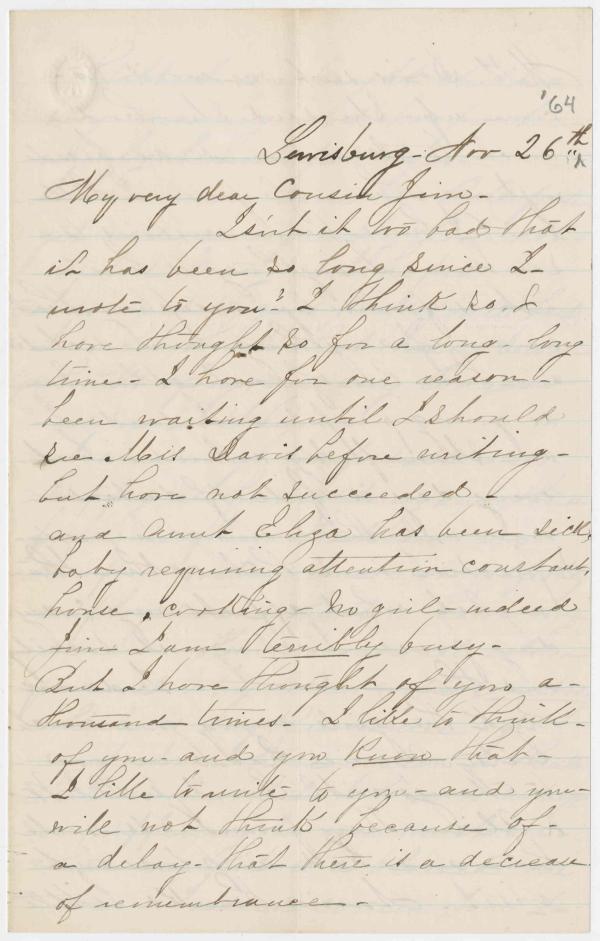 '64
Lewisburg - Nov 26th
My very dear Cousin Jim -
Isn't it too bad that
it has been so long since I
wrote to you? I think so. I
have thought so for a long - long
time - I have for one reason -
been waiting until I should
see Mrs Davis before writing -
but have not succeeded -
and Aunt Eliza has been sick,
baby requiring attention constant,
house, cooking - no girl - indeed
Jim I am terribly busy -
But I have thought of you a -
thousand times - I like to think -
of you - and you know that -
I like to write to you - and you -
will not think because of -
a delay - that there is a decrease
of remembrance -